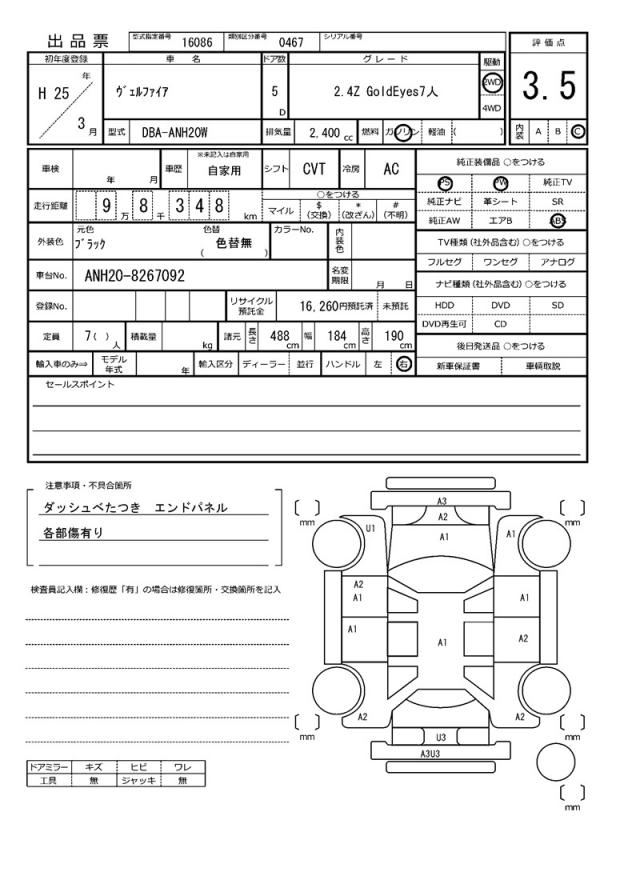 出品票
型式指定番号 16086 類別区分番号 0467 シリアル番号
評価点
3.5
内装 A B C
初年度登録 車名 ドア数 グレード 駆動
H 25 年 3 月
ヴェルファイア
5 D
2.4Z GoldEyes7人
2WD
4WD
型式 DBA-ANH20W 排気量 2,400 cc 燃料 ガソリン 軽油 ( )
車検 年 月 車歴 ※未記入は自家用 自家用 シフト CVT 冷房 AC
純正装備品 ○をつける
PS PW 純正TV
純正ナビ 革シート SR
純正AW エアB ABS
走行距離 9 万 8 千 3 4 8 km
○をつける
マイル $(交換) *(改ざん) #(不明)
外装色 元色 ブラック 色替 色替無 ( ) カラーNo. 内装色
TV種類 (社外品含む) ○をつける
フルセグ ワンセグ アナログ
車台No. ANH20-8267092 名変期限 月 日
ナビ種類 (社外品含む) ○をつける
HDD DVD SD
DVD再生可 CD
登録No. リサイクル預託金 16,260円預託済 未預託
定員 7( ) 人 積載量 kg 諸元 長さ 488 cm 幅 184 cm 高さ 190 cm
後日発送品 ○をつける
新車保証書 車輌取説
輸入車のみ⇒ モデル年式 年 輸入区分 ディーラー 並行 ハンドル 左 右
セールスポイント
注意事項・不具合箇所
ダッシュべたつき エンドパネル
各部傷有り
検査員記入欄:修復歴「有」の場合は修復箇所・交換箇所を記入
A3
A2
U1 A1 A1
A2
A1 A1
A1 A1 A2
A2 A2
U3
A3U3
mm mm
mm mm
mm
ドアミラー キズ ヒビ ワレ
工具 無 ジャッキ 無